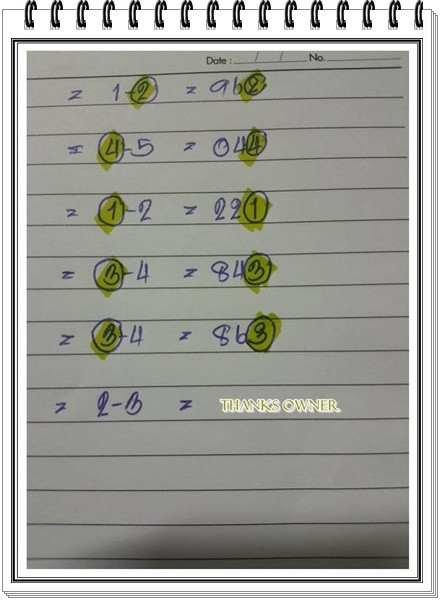 Date : / / No.
= 1-2 = 962
= 4-5 = 044
= 1-2 = 221
= 3-4 = 843
= 3-4 = 863
= 2-3 = THANKS OWNER.